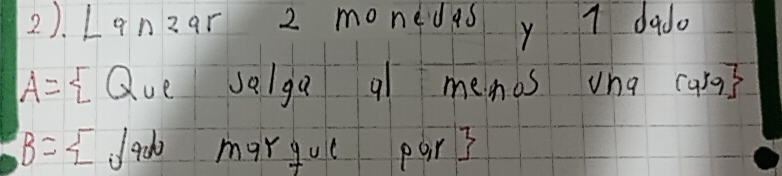 2). Lanzar 2 monedas y 1 dado
A={ Que salga al menos una cara}
B={ dado marque par }